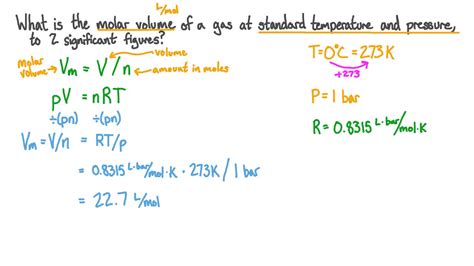 L/mol
What is the molar volume of a gas at standard temperature and pressure,
to 2 significant figures?
molar volume → Vm = V/n
volume
amount in moles
T=0°C = 273K
+273
pV = nRT
P = 1 bar
÷(pn) ÷(pn)
R = 0.8315 L·bar/mol·K
Vm = V/n = RT/p
= 0.8315 L·bar/mol·K · 273K / 1 bar
= 22.7 L/mol